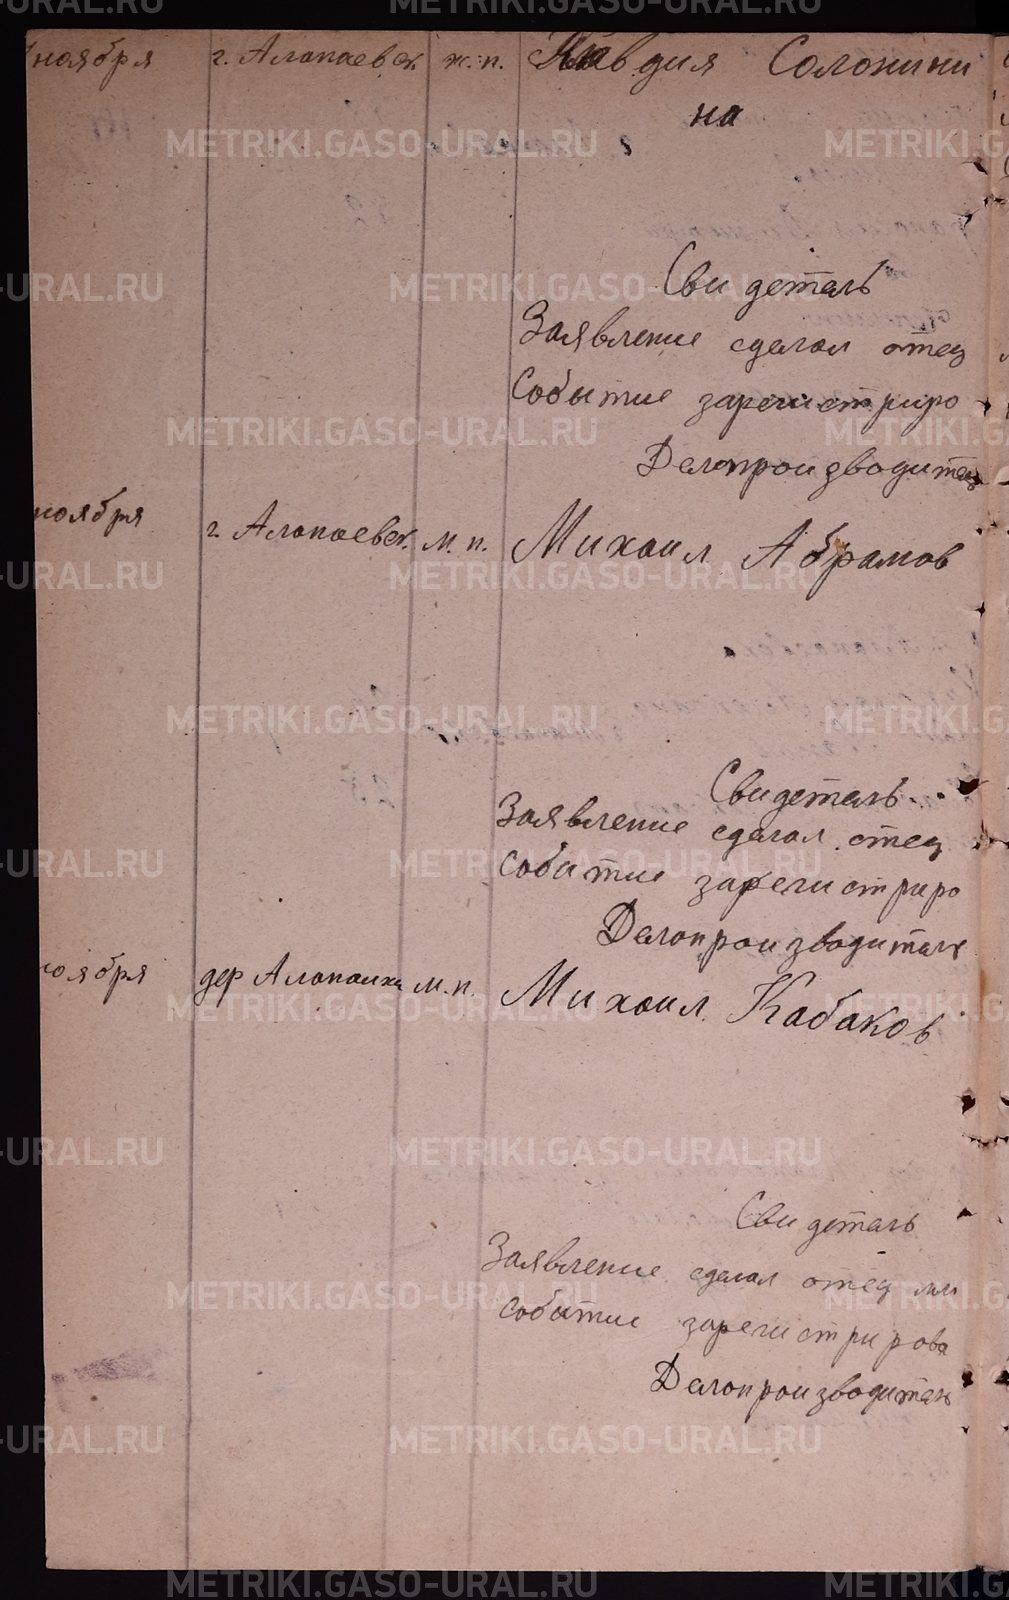 ноября г. Алапаевск ж.п. Клавдия Солонини
на
Свидетель
Заявление сделал отец
Событие зарегистриро
Делопроизводитель
ноября г. Алапаевск. м.п. Михаил Абрамов
Свидетель
Заявление сделал отец
событие зарегистриро
Делопроизводитель
ноября дер Алапаиха м.п. Михаил Кабаков
Свидетель
Заявление сделал отец мл
событие зарегистрирова
Делопроизводитель
METRIKI.GASO-URAL.RU